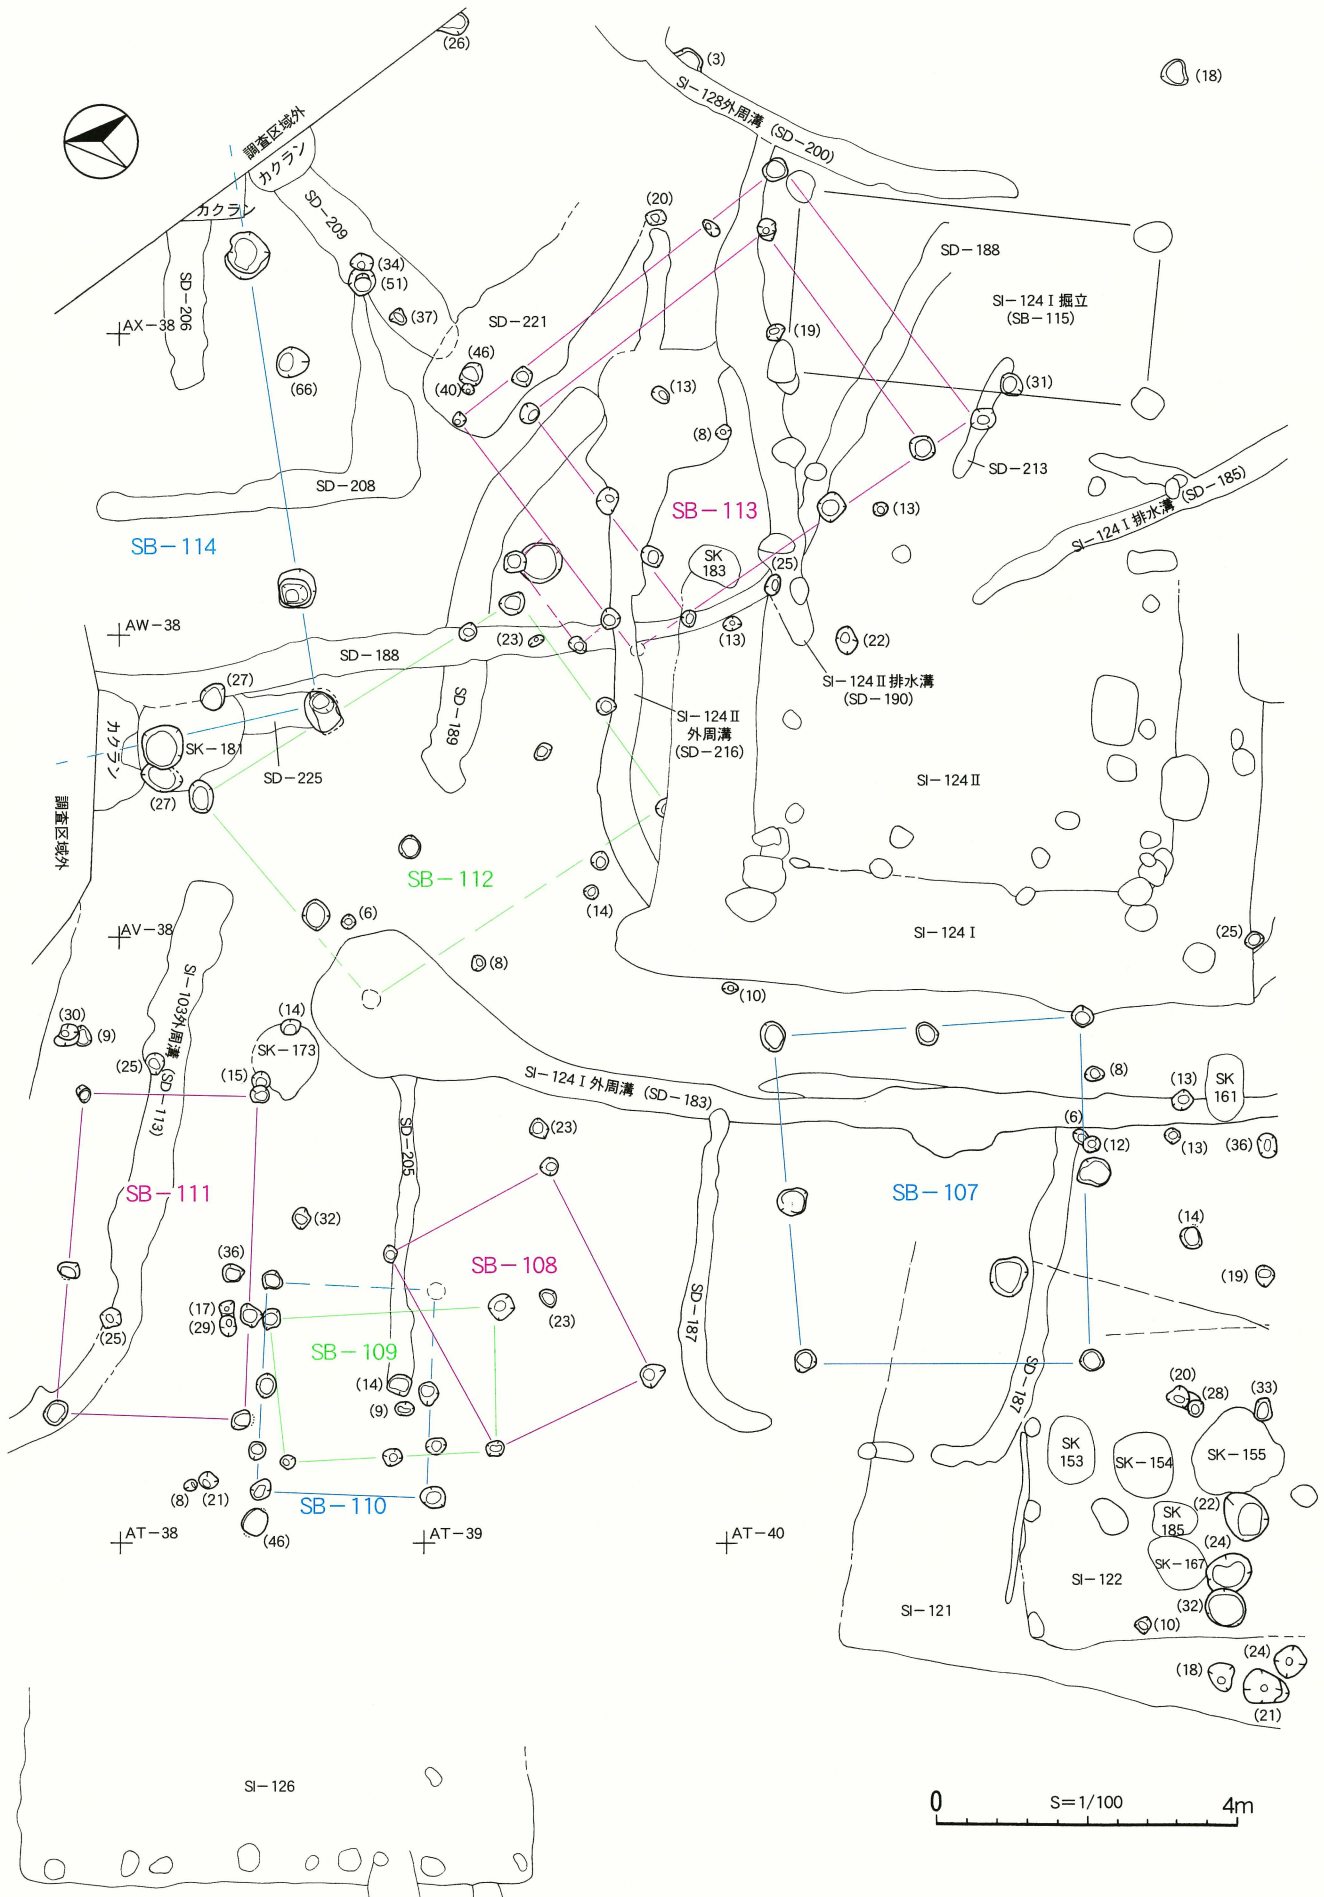 (26)
(3)
(18)
SI-128外周溝 (SD-200)
調査区域外
カクラン
カクラン
SD-209
(20)
SD-188
(34)
(51)
SD-206
SI-124Ⅰ掘立
(SB-115)
(37)
SD-221
AX-38
(19)
(46)
(66)
(40)
(13)
(31)
(8)
SD-213
SD-208
SI-124Ⅰ排水溝 (SD-185)
SB-113
(13)
SB-114
SK
183
(25)
AW-38
(23)
(13)
(22)
SD-188
SI-124Ⅱ排水溝
(SD-190)
(27)
SD-189
SI-124Ⅱ
外周溝
(SD-216)
カクラン
SK-181
SD-225
SI-124Ⅱ
(27)
調査区域外
SB-112
(6)
(14)
AV-38
SI-124Ⅰ
(25)
(8)
(10)
SI-103外周溝 (SD-113)
(30)
(9)
(14)
SK-173
(25)
(15)
SI-124Ⅰ外周溝 (SD-183)
(8)
(13)
SK
161
(6)
(12)
(13)
(36)
(23)
SD-205
SB-111
SB-107
(32)
(14)
(36)
SB-108
(19)
(17)
(29)
(23)
SD-187
(25)
SB-109
(14)
(9)
SD-187
(20)
(28)
(33)
SK
153
SK-154
SK-155
(8)
(21)
SB-110
(22)
SK
185
(46)
AT-38
AT-39
AT-40
(24)
SK-167
SI-122
(32)
SI-121
(10)
(24)
(18)
(21)
SI-126
0
S=1/100
4m